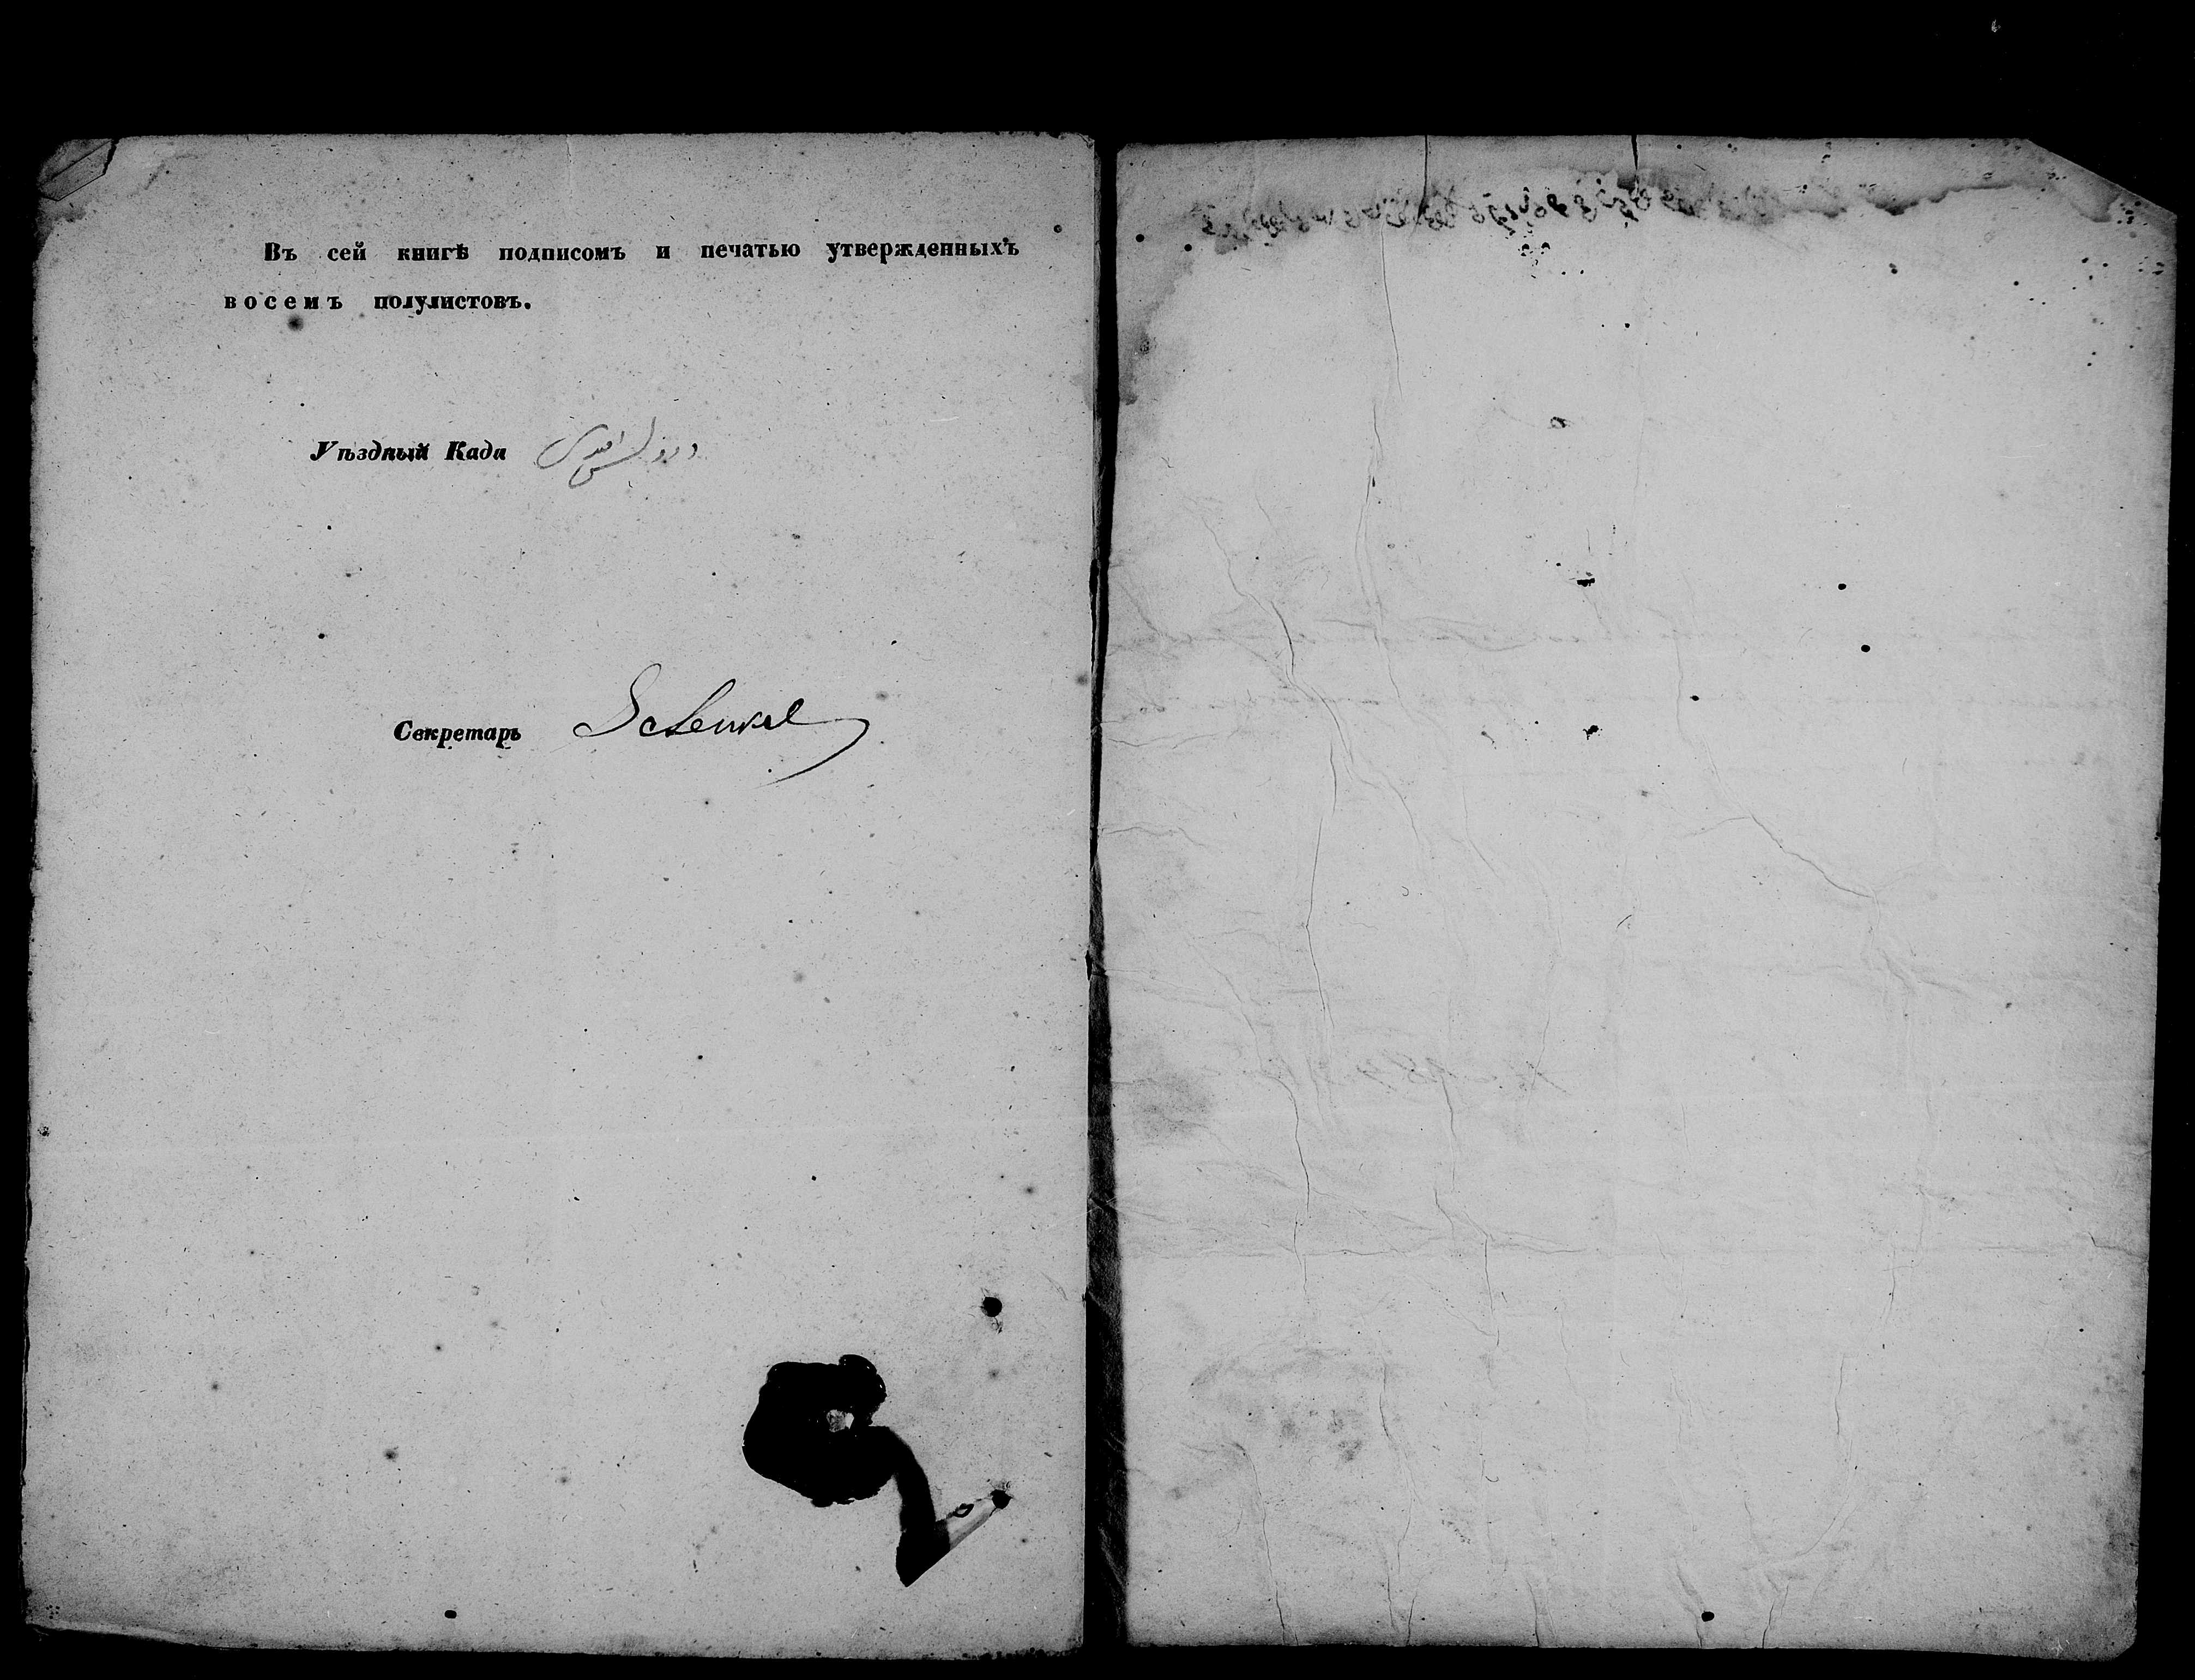 Въ сей книгѣ подписомъ и печатью утвержденныхъ
восемъ полулистовъ.
Уѣздный Кади
Секретарь Schenkel